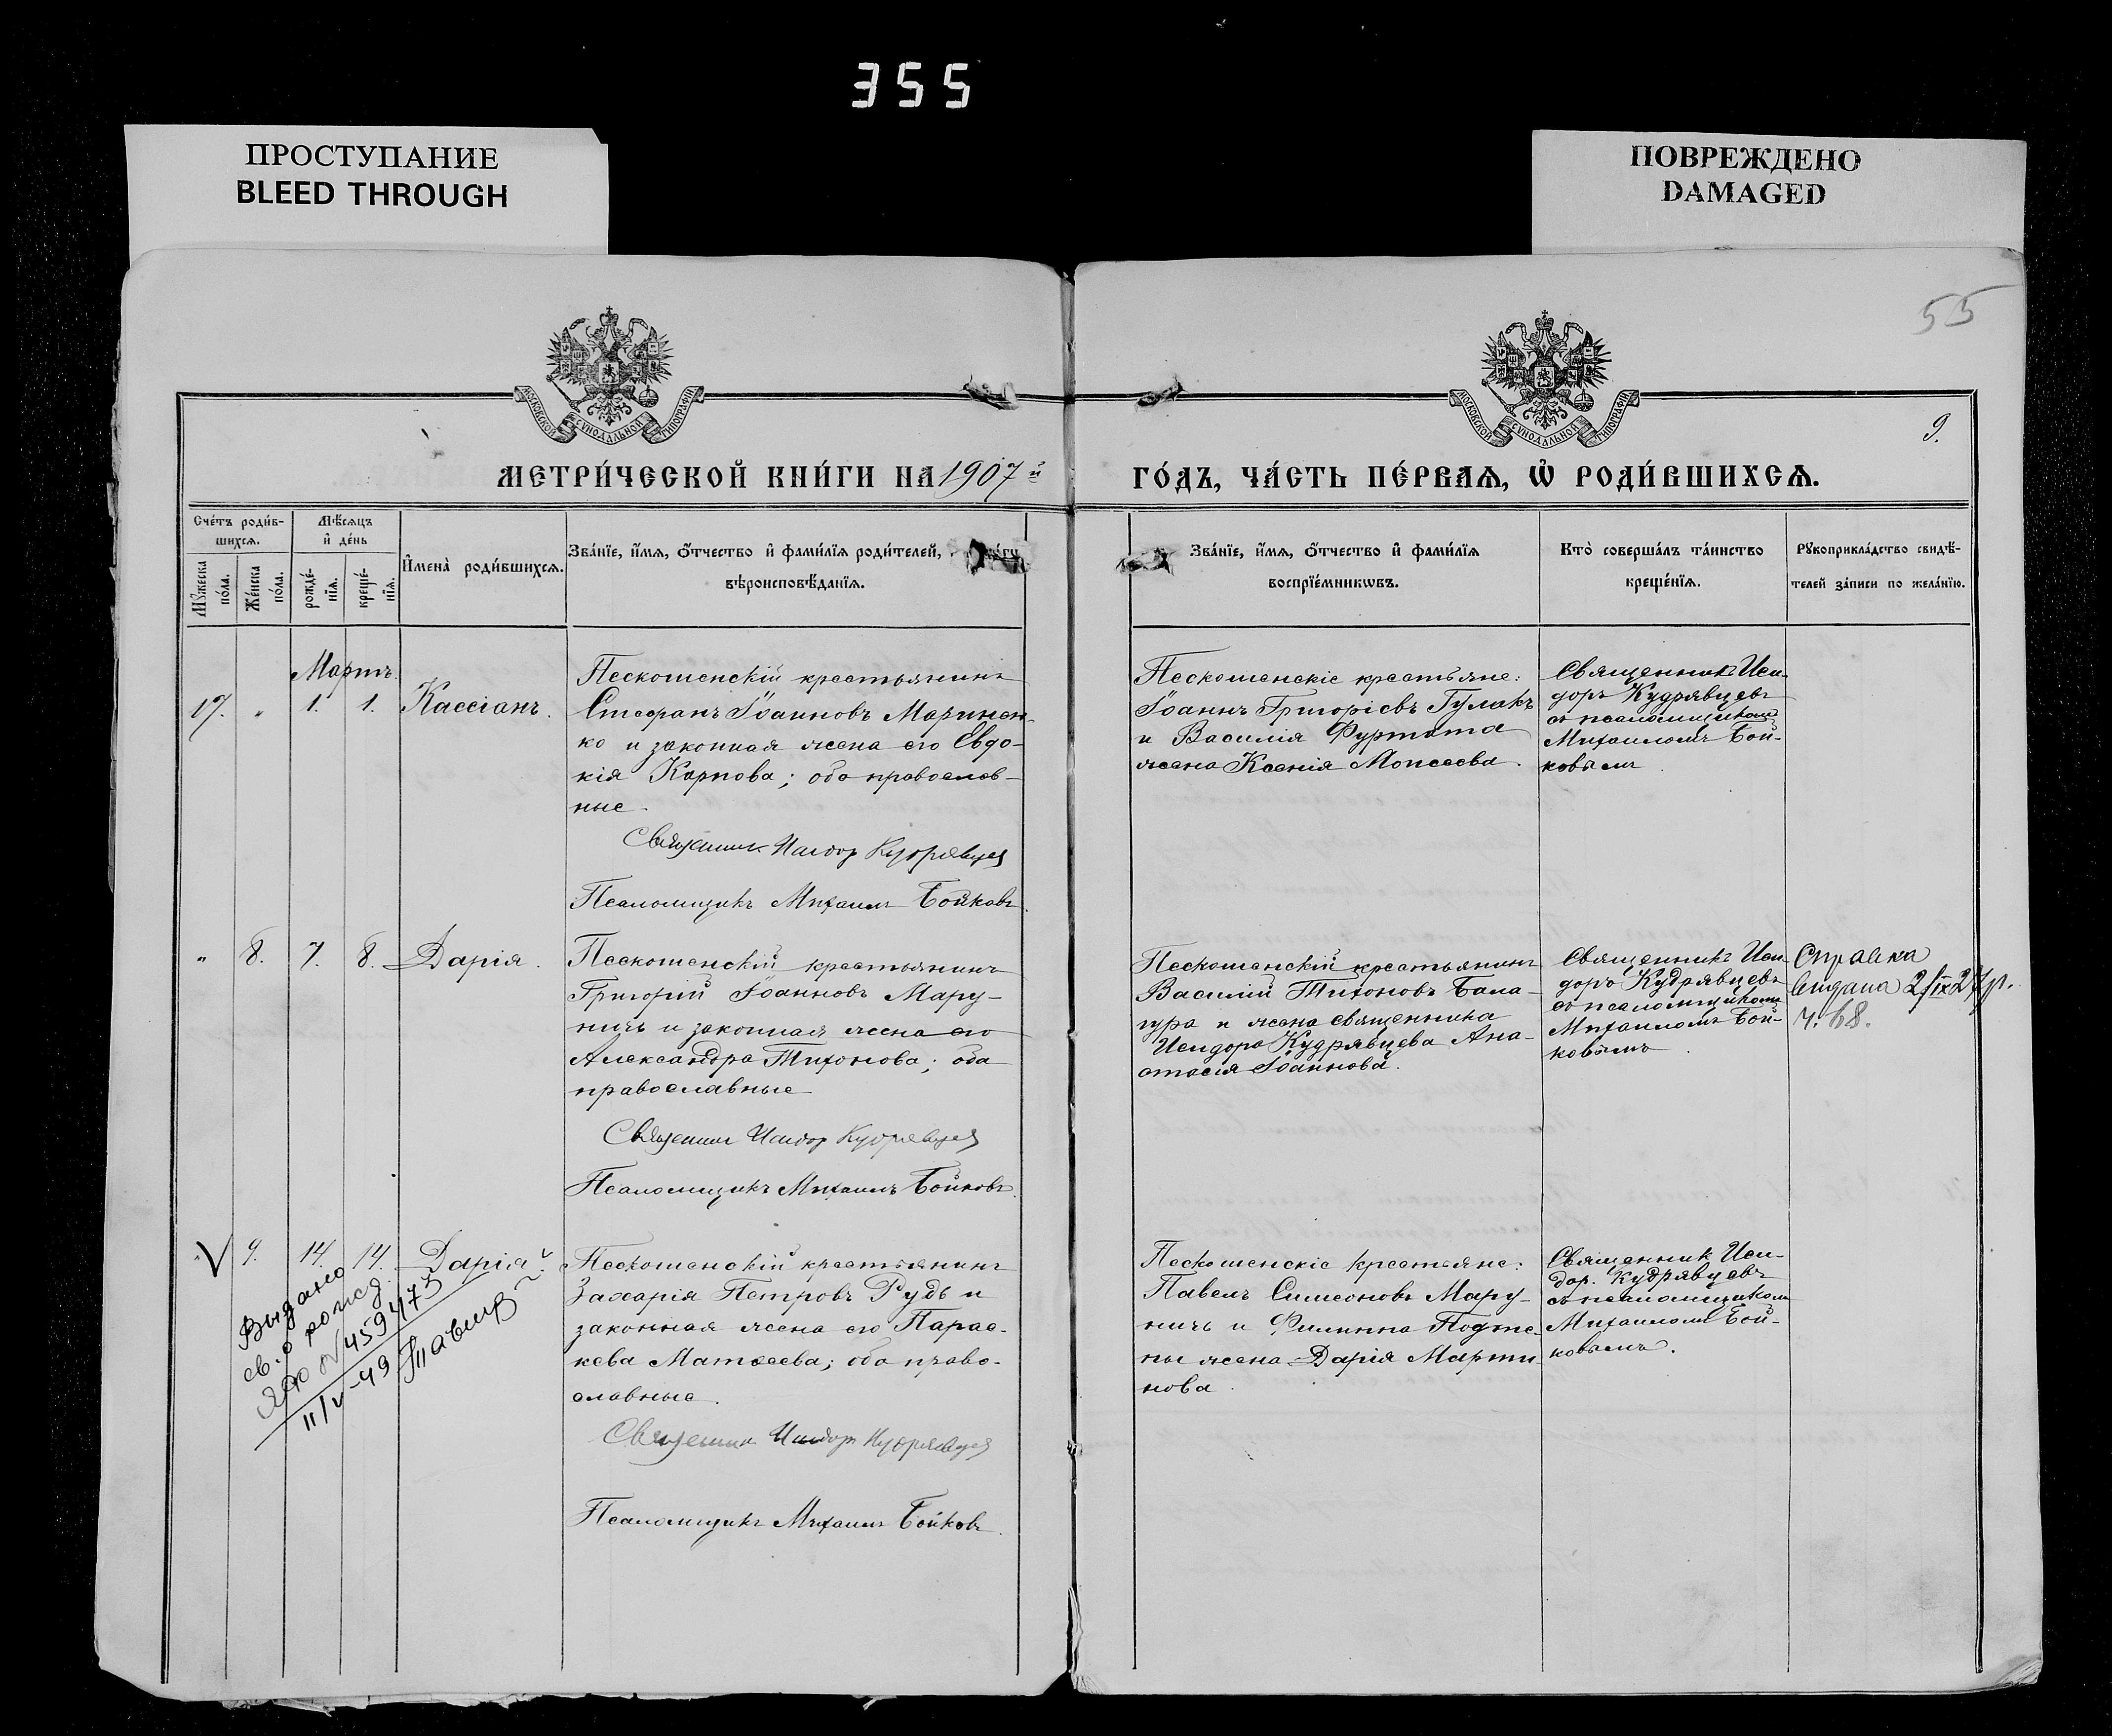 355
ПРОСТУПАНИЕ
BLEED THROUGH
ПОВРЕЖДЕНО
DAMAGED
55
МОСКОВСКОЙ СУНОДАЛЬНОЙ ТИПОГРАФІИ
МОСКОВСКОЙ СУНОДАЛЬНОЙ ТИПОГРАФІИ
9.
МЕТРИ́ЧЕСКОЙ КНИ́ГИ НА 1907 й
ГО́ДЪ, ЧА́СТЬ ПЕ́РВАѦ, Ѡ РОДИ́ВШИХСѦ.
Сче́тъ роди́в-
шихсѧ.
Мꙋжеска по́ла.
Же́нска по́ла.
Мѣ́сѧцъ
и҆ де́нь
рожде́-
нїѧ.
креще́-
нїѧ.
И҆мена̀ роди́вшихсѧ.
Зва́нїе, и҆́мѧ, ѻ҆́тчество и҆ фами́лїѧ роди́телей,
вѣроисповѣ́данїѧ.
Зва́нїе, и҆́мѧ, ѻ҆́тчество и҆ фами́лїѧ
воспрїе́мникѡвъ.
Кто̀ соверша́лъ та́инство
креще́нїѧ.
Рꙋкоприкла́дство свидѣ́-
телей за́писи по жела́нїю.
Мартъ.
17. „ 1. 1. Кассіанъ.
Пескошенскій крестьянинъ
Стефанъ Іоанновъ Маринен-
ко и законная жена его Евдо-
кія Карпова; оба православ-
ные.
Священникъ Исидор Кудрявцев
Псаломщикъ Михаилъ Бойковъ.
Пескошенскіе крестьяне:
Іоаннъ Григорьевъ Гулакъ
и Василія
жена Ксенія Моисеева.
Священникъ Иси-
доръ Кудрявцевъ
съ псаломщикомъ
Михаиломъ Бой-
ковымъ
„ 8. 7. 8. Дарія.
Пескошенскій крестьянинъ
Григорій Іоанновъ Мару-
ничъ и законная жена его
Александра Тихонова; оба
православные
Священник Исидор Кудрявцев
Псаломщикъ Михаилъ Бойковъ.
Пескошенскій крестьянинъ
Василій Тихоновъ Бала-
гура и жена священника
Исидора Кудрявцева Ана-
стасія Іоаннова.
Священникъ Иси-
доръ Кудрявцевъ
съ псаломщикомъ
Михаиломъ Бой-
ковымъ.
Справка
видана 2/IX 27р.
ч. 68.
V 9. 14. 14. Дарія.
Пескошенскій крестьянинъ
Захарія Петровъ Рудь и
законная жена его Парас-
кева Матѳеева; оба право-
славные.
Священник Исидор Кудрявцев
Псаломщикъ Михаилъ Бойковъ.
Пескошенскіе крестьяне:
Павелъ Симеоновъ Мару-
ничъ и Филиппа
жена Дарія Марти
нова.
Священник Иси-
дор. Кудрявцевъ
съ псаломщикомъ
Михаиломъ Бой-
ковымъ.
Выдано
св. о рожд.
№ 459473
11/V-49